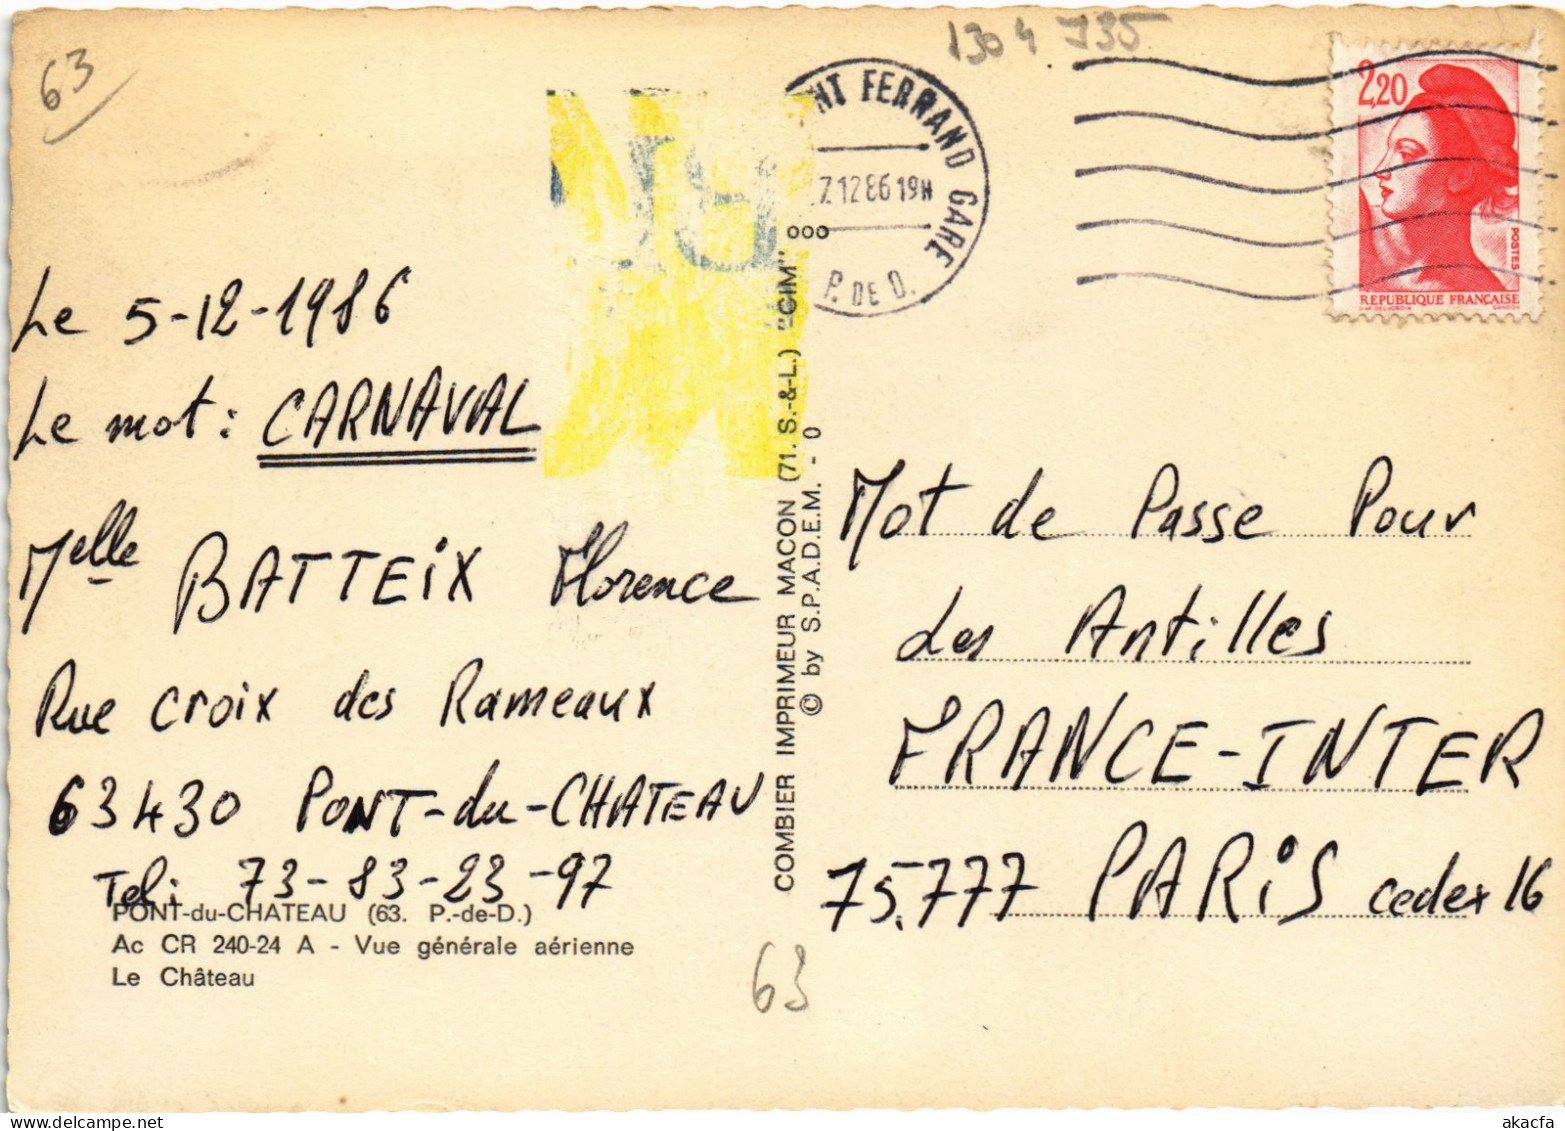 63
1304 735
NT FERRAND GARE
7.12 86 19H
P. DE D.
2,20
POSTES
RÉPUBLIQUE FRANÇAISE
Le 5-12-1986
Le mot : CARNAVAL
Melle BATTEiX Florence
Rue croix des Rameaux
63430 PONT-du-CHATEAU
Tel : 73-83-23-97
PONT-du-CHATEAU (63. P.-de-D.)
Ac CR 240-24 A - Vue générale aérienne
Le Château
COMBIER IMPRIMEUR MACON (71. S.-&-L.) "CIM"
© by S.P.A.D.E.M. - 0
ooo
Mot de Passe Pour
les Antilles
FRANCE-INTER
75.777 PARiS cedex 16
63
akacfa
www.delcampe.net